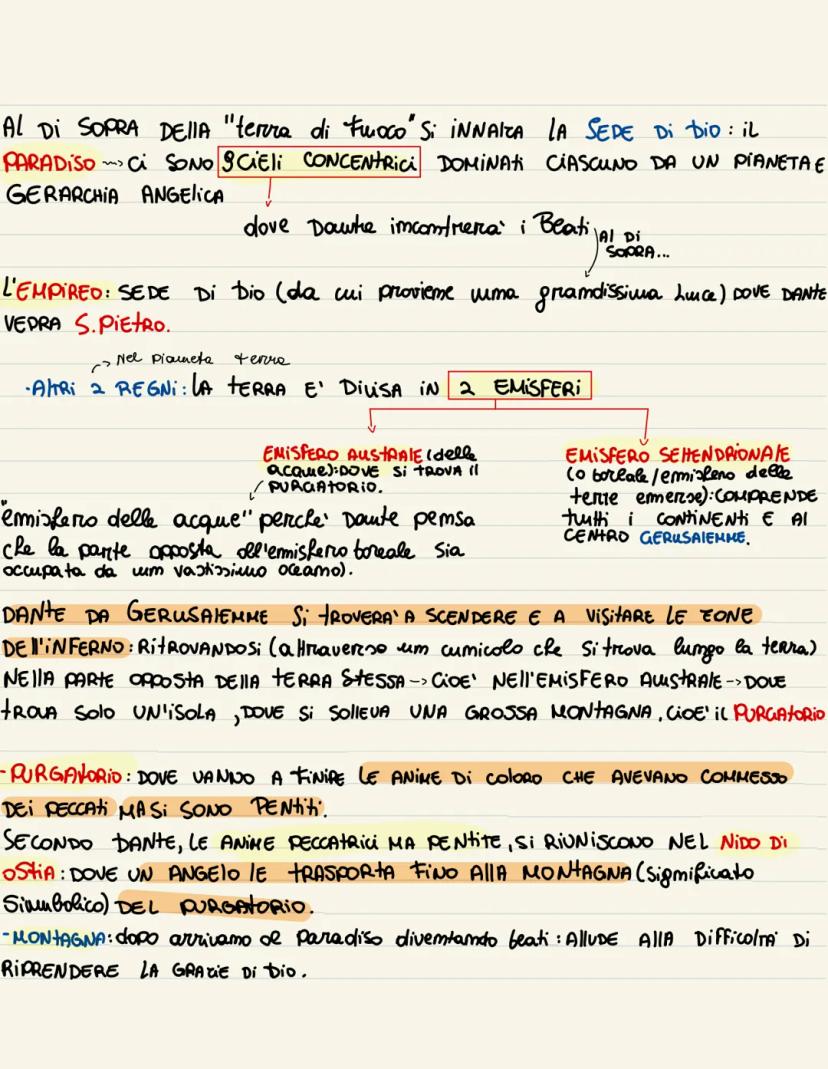 AL DI SOPRA DELLA "terra di fuoco" SI INNALZA LA SEDE DI DIO: IL
PARADISO ~> CI SONO 9 CIELI CONCENTRICI DOMINATI CIASCUNO DA UN PIANETA E
GERARCHIA ANGELICA
dove Dante incontrera' i Beati
AL DI
SOPRA...
L'EMPIREO: SEDE DI DIO (da cui proviene una grandissima luce) DOVE DANTE
VEDRA S. PIETRO.
Nel Pianeta terra
·ALTRI 2 REGNI: LA TERRA E' DIVISA IN 2 EMISFERI
EMISFERO AUSTRALE (delle
acque): DOVE SI TROVA IL
PURGATORIO.
EMISFERO SETTENDRIONALE
(o boreale/emisfero delle
terre emerse): COMPRENDE
tutti i CONTINENTI E AL
CENTRO GERUSALEMME.
"emisfero delle acque" perche' Dante pensa
che la parte opposta all'emisfero boreale sia
occupata da un vastissimo oceano).
DANTE DA GERUSALEMME SI TROVERA' A SCENDERE E A VISITARE LE ZONE
DELL'INFERNO: RITROVANDOSI (attraverso un cunicolo che si trova lungo la terra)
NELLA PARTE OPPOSTA DELLA TERRA STESSA -> CIOE' NELL'EMISFERO AUSTRALE -> DOVE
TROVA SOLO UN'ISOLA, DOVE SI SOLLEVA UNA GROSSA MONTAGNA, CIOE' IL PURGATORIO
-PURGATORIO: DOVE VANNO A FINIRE LE ANIME DI COLORO CHE AVEVANO COMMESSO
DEI PECCATI MA SI SONO PENTITI.
SECONDO DANTE, LE ANIME PECCATRICI MA PENTITE, SI RIUNISCONO NEL NIDO DI
OSTIA: DOVE UN ANGELO LE TRASPORTA FINO ALLA MONTAGNA (significato
Simbolico) DEL PURGATORIO.
-MONTAGNA: dopo arrivano al Paradiso diventando beati: ALLUDE ALLA DIFFICOLTA' DI
RIPRENDERE LA GRAZIE DI DIO.